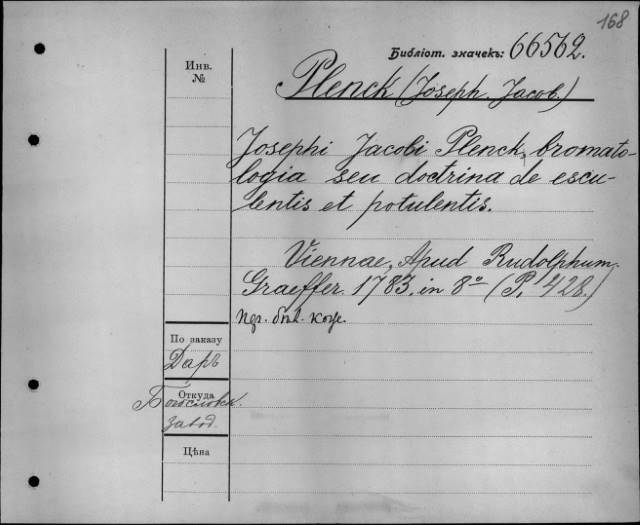 168
Библіот. значекъ: 66562.
Инв.
№
Plenck (Joseph. Jacob.)
Josephi Jacobi Plenck, bromato-
logia seu doctrina de escu-
lentis et potulentis.
Viennae, Apud Rudolphum
Graeffer. 1783. in 8º (P. 428.)
Пер. был. кож.
По заказу
Даръ
Откуда
Богословск.
завод.
Цѣна